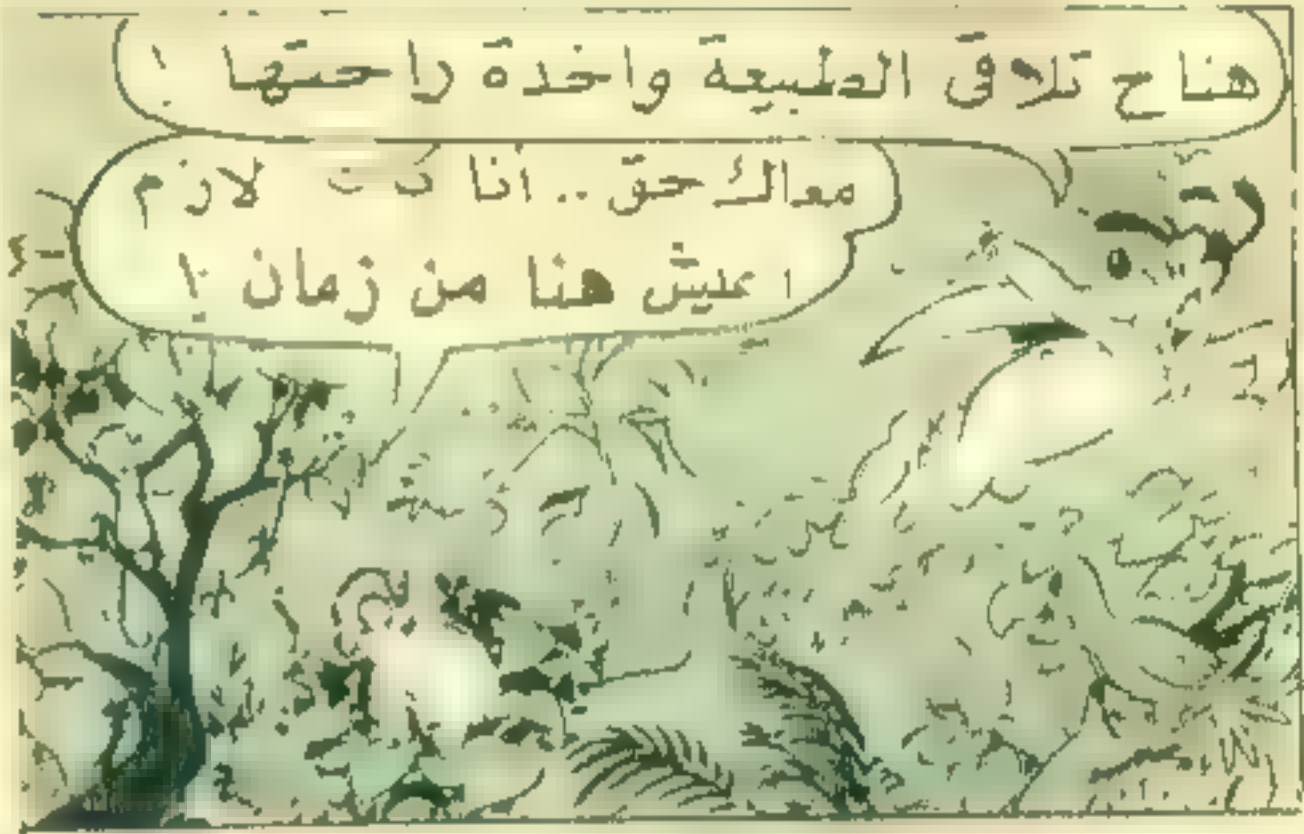 هنا ح تلاقى الطبيعة واخدة راحتها !
معاك حق .. أنا كنت لازم
اعيش هنا من زمان !